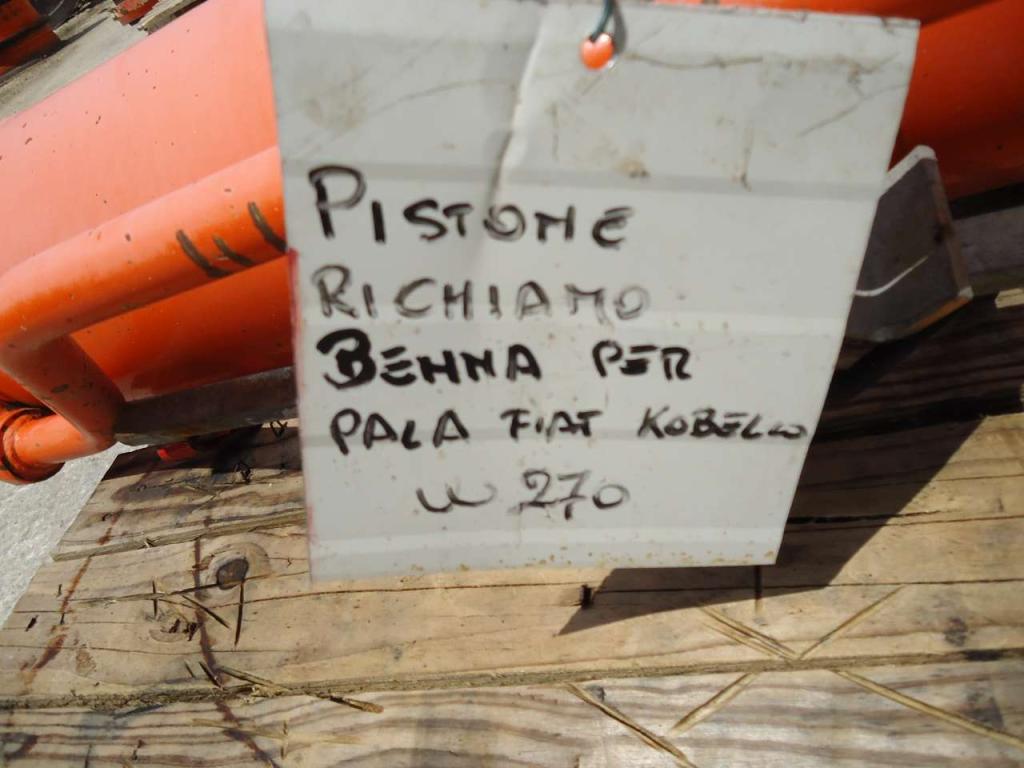 PISTONE
RICHIAMO
BENNA PER
PALA FIAT KOBELCO
W 270